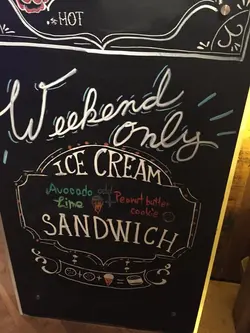 HOT
Weekend
Only
ICE CREAM
Avocado Lime + Peanut butter cookie
SANDWICH
+ + =